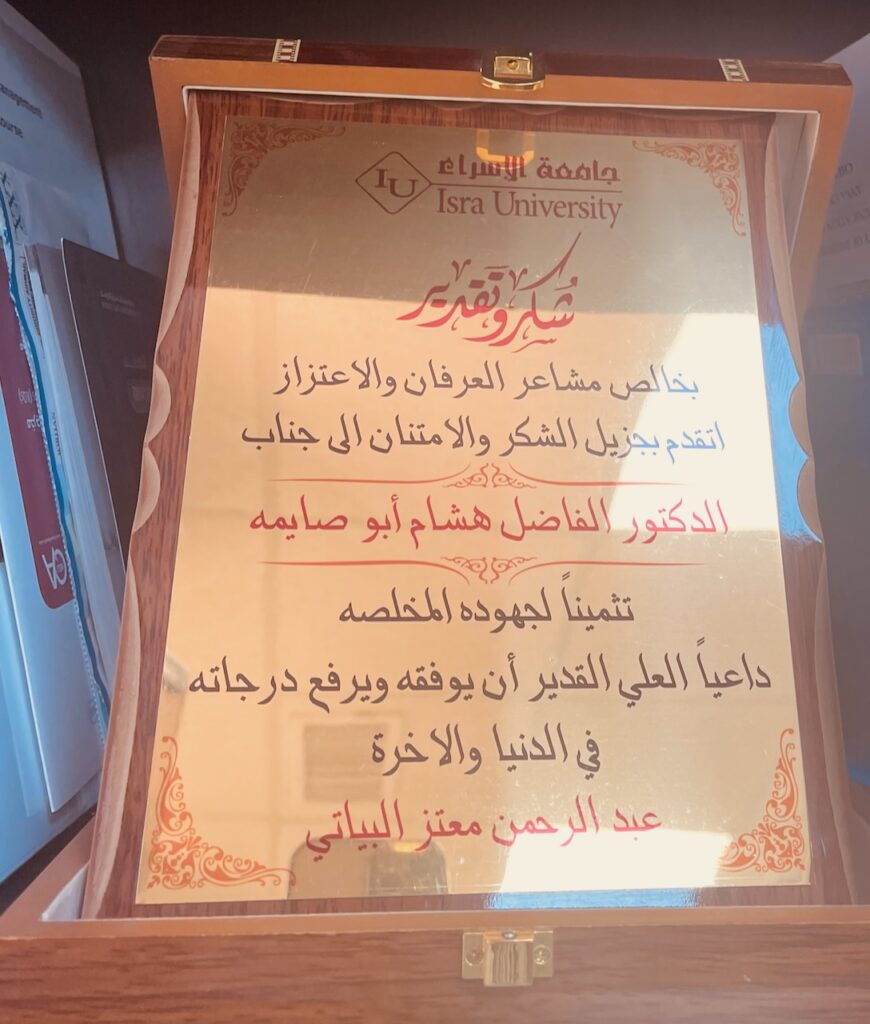 anagement
ourse
IU
جامعة الإسراء
Isra University
شكر وتقدير
بخالص مشاعر العرفان والاعتزاز
اتقدم بجزيل الشكر والامتنان الى جناب
الدكتور الفاضل هشام أبو صايمه
تثميناً لجهوده المخلصه
داعياً العلي القدير أن يوفقه ويرفع درجاته
في الدنيا والاخرة
عبد الرحمن معتز البياتي
QA